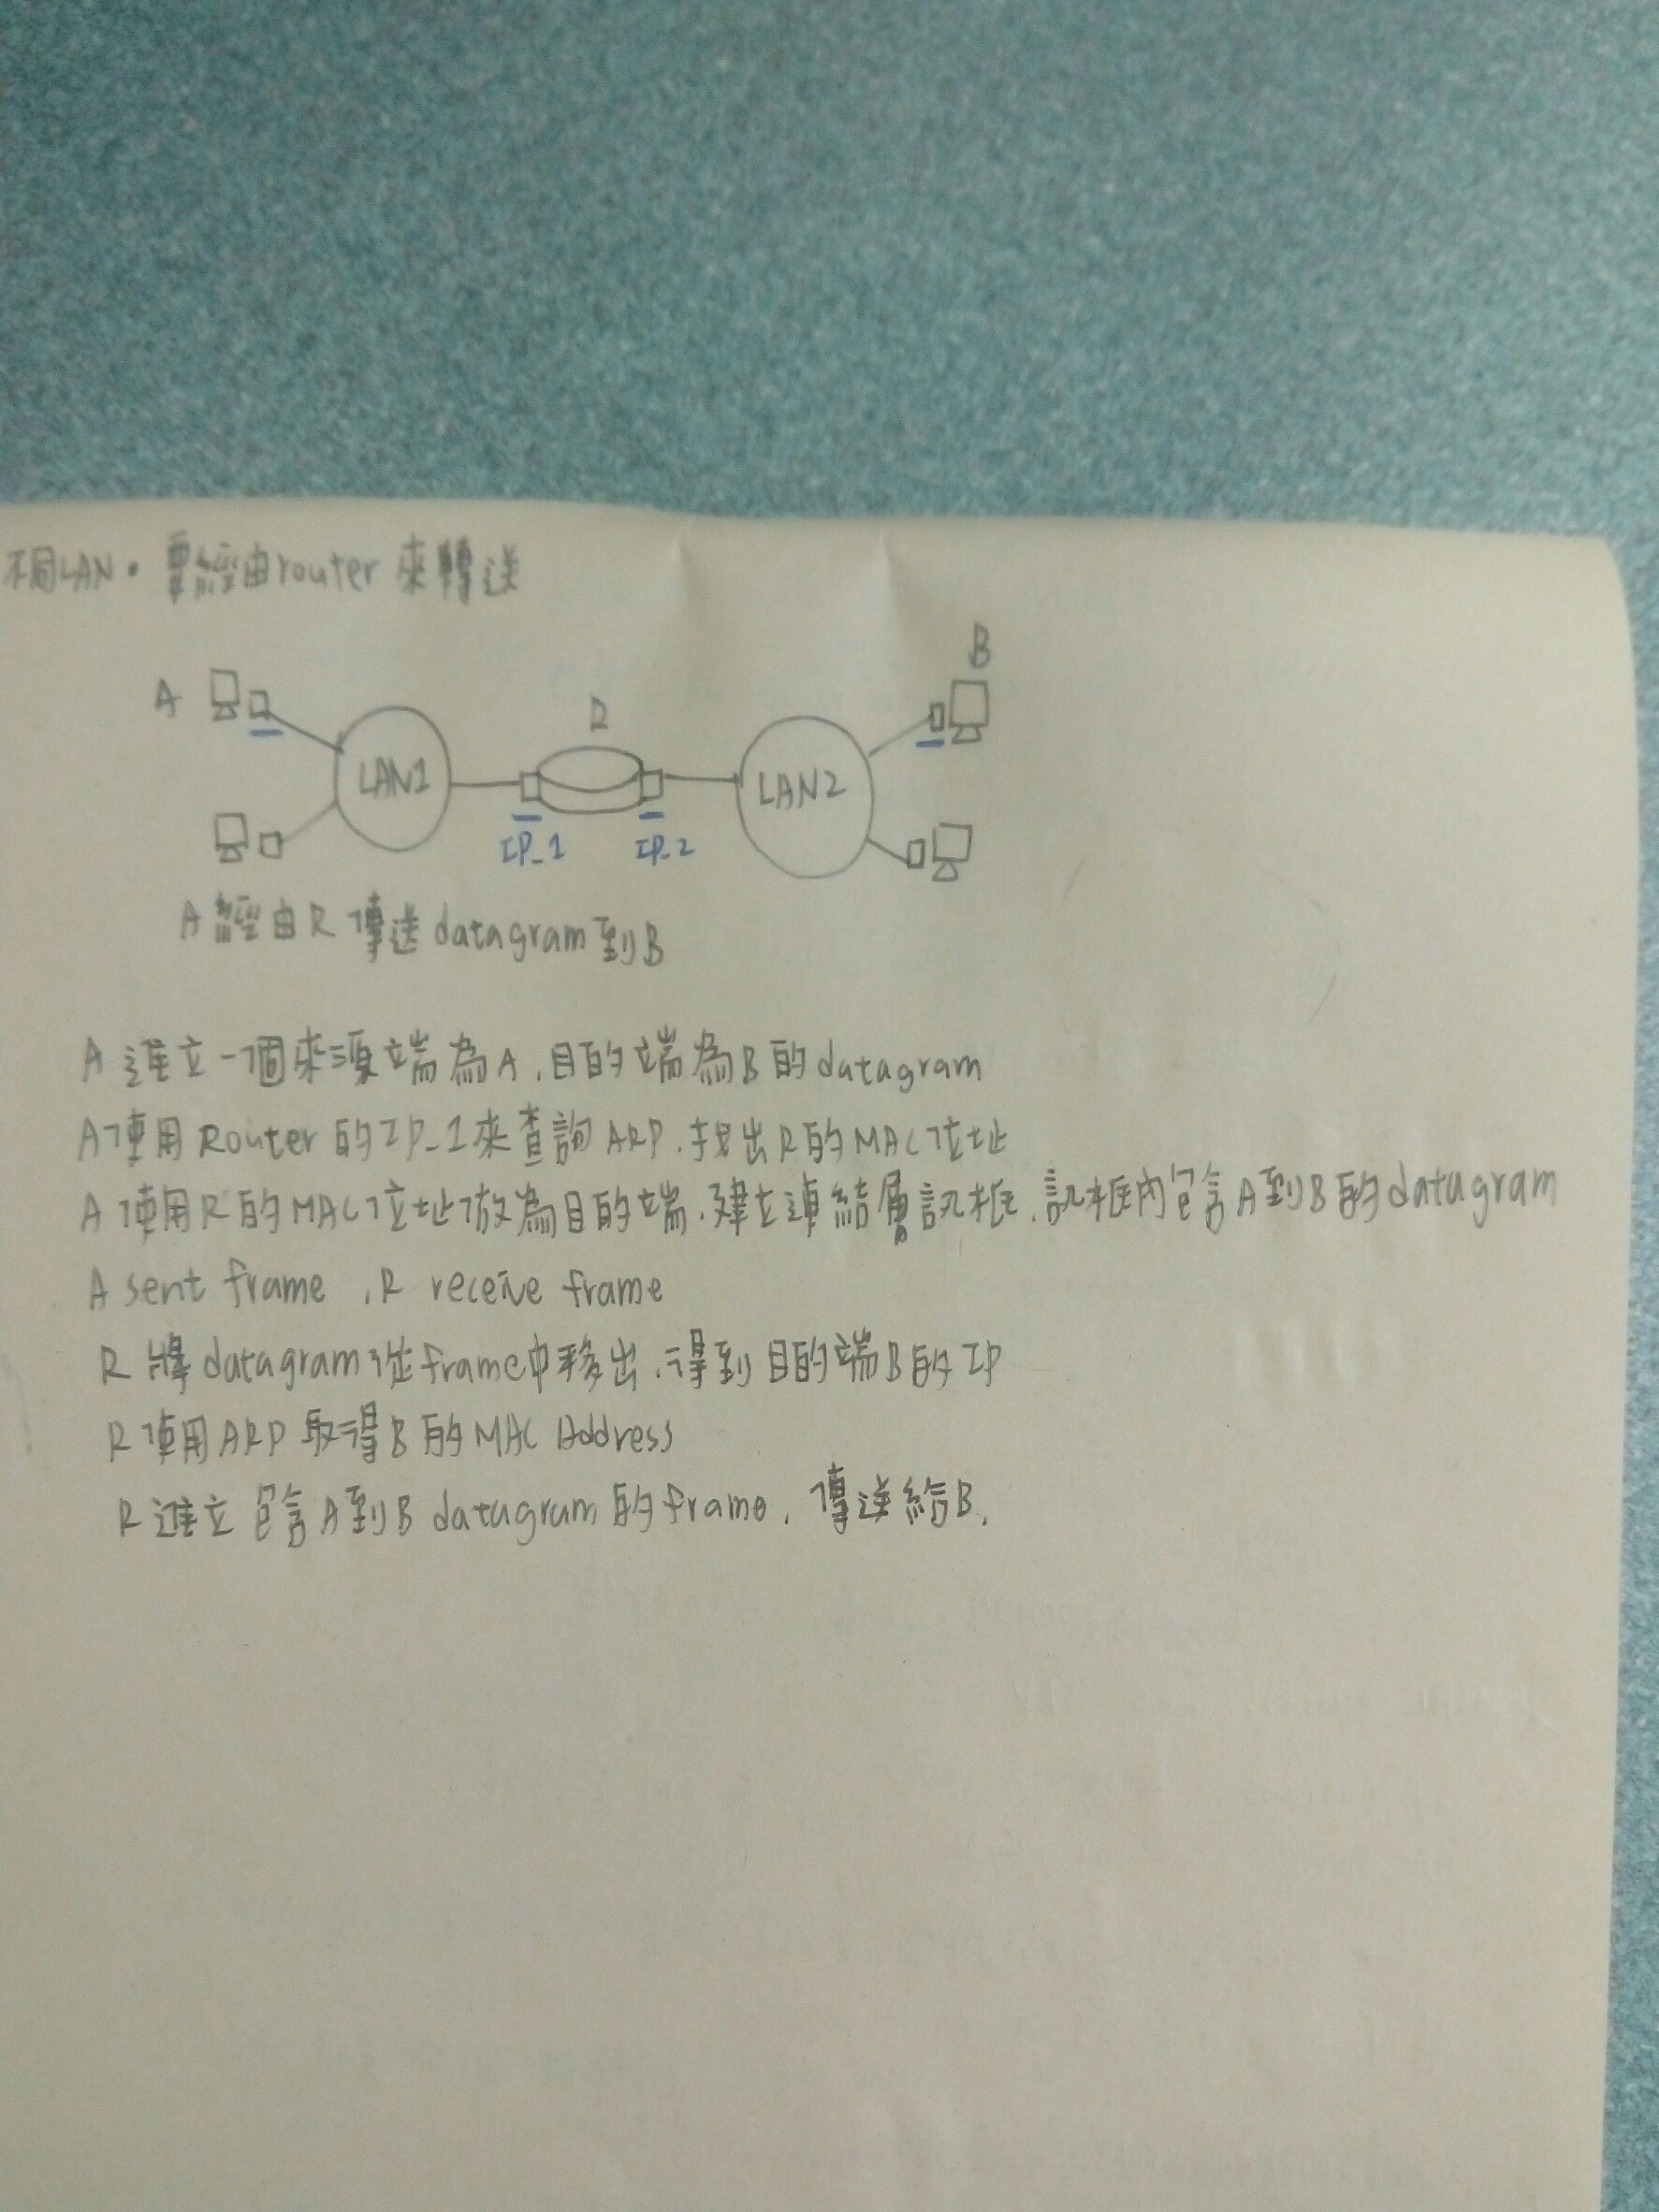 不同LAN. 要經由router 來轉送
A
B
R
LAN1
LAN2
IP_1
IP_2
A 經由R 傳送 datagram 到B
A 建立一個來源端為A,目的端為B的datagram
A使用Router的IP_1來查詢ARP,找出R的MAC位址
A使用R的MAC位址做為目的端,建立連結層訊框,訊框內包含A到B的datagram
A sent frame ,R receive frame
R 將 datagram從frame中移出,得到目的端B的IP
R使用ARP 取得B的MAC Address
R建立包含A到B datagram的frame, 傳送給B,